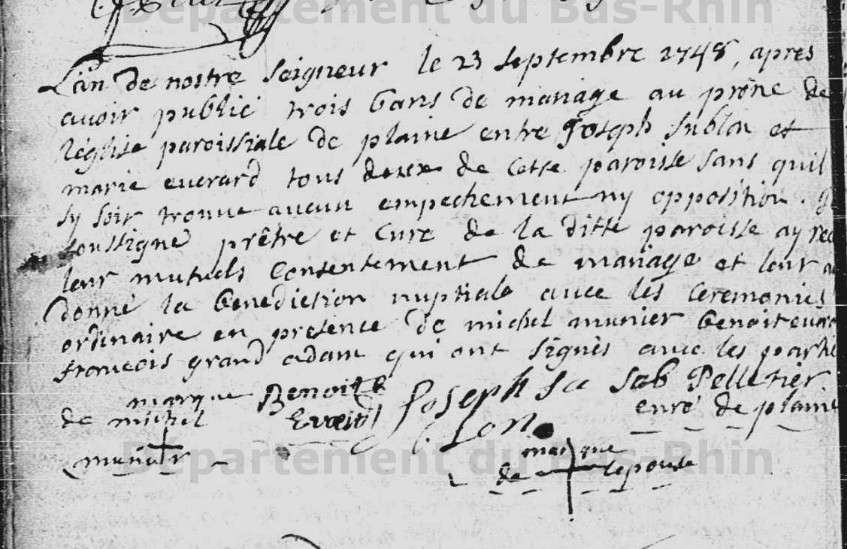 Département du Bas-Rhin
Lan de nostre Seigneur le 23 Septembre 1748, apres
avoir publié trois bans de mariage au prône de
léglise paroissiale de plaine entre Joseph Sublon et
marie everard tous deux de cette paroisse sans quil
sy soit trouvé aucun empechement ny opposition. Je
soussigné prêtre et curé de la ditte paroisse ay rec
leur mutuels consentement de mariage et leur a
donné la benediction nuptiale avec les ceremonies
ordinaire en presence de michel munier benoit evrard
francois grand adam qui ont signés avec les partie
marque Benoit Joseph Su Seb Pelletier
de michel Evrard lon curé de plaine
munier marque
de lepouse
Département du Bas-Rhin